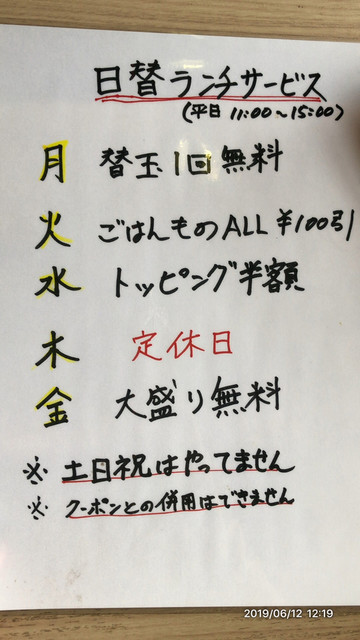 日替ランチサービス
(平日 11:00~15:00)
月 替玉1回無料
火 ごはんものALL ¥100引
水 トッピング半額
木 定休日
金 大盛り無料
※ 土日祝はやってません
※ クーポンとの併用はできません
2019/06/12 12:19